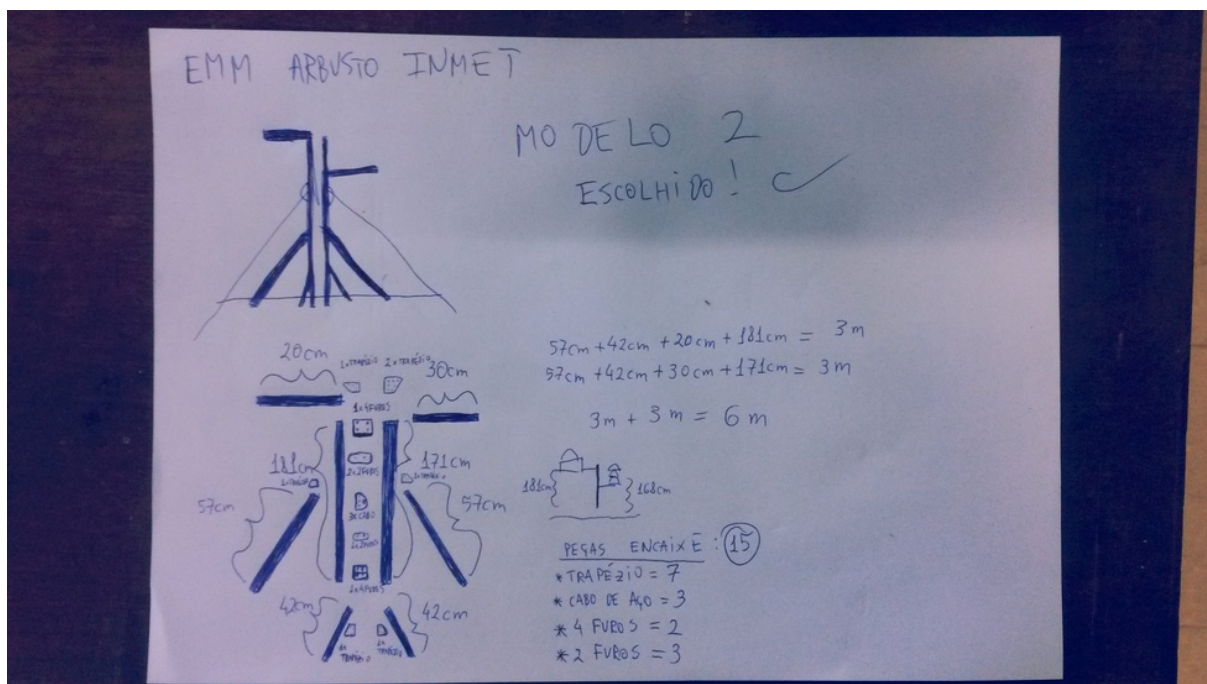 EMM ARBUSTO INMET
MODELO 2
ESCOLHIDO!
20cm
1xTRAPÉZIO
2xTRAPÉZIO
30cm
1x4FUROS
181cm
2x2FUROS
171cm
57cm
57cm
3xCABO
42cm
42cm
TRAPÉZIO
TRAPÉZIO
57cm+42cm+20cm+181cm= 3m
57cm+42cm+30cm+171cm= 3m
3m + 3m = 6m
181cm
168cm
PEÇAS ENCAIXE: 15
*TRAPÉZIO = 7
*CABO DE AÇO = 3
*4 FUROS = 2
*2 FUROS = 3